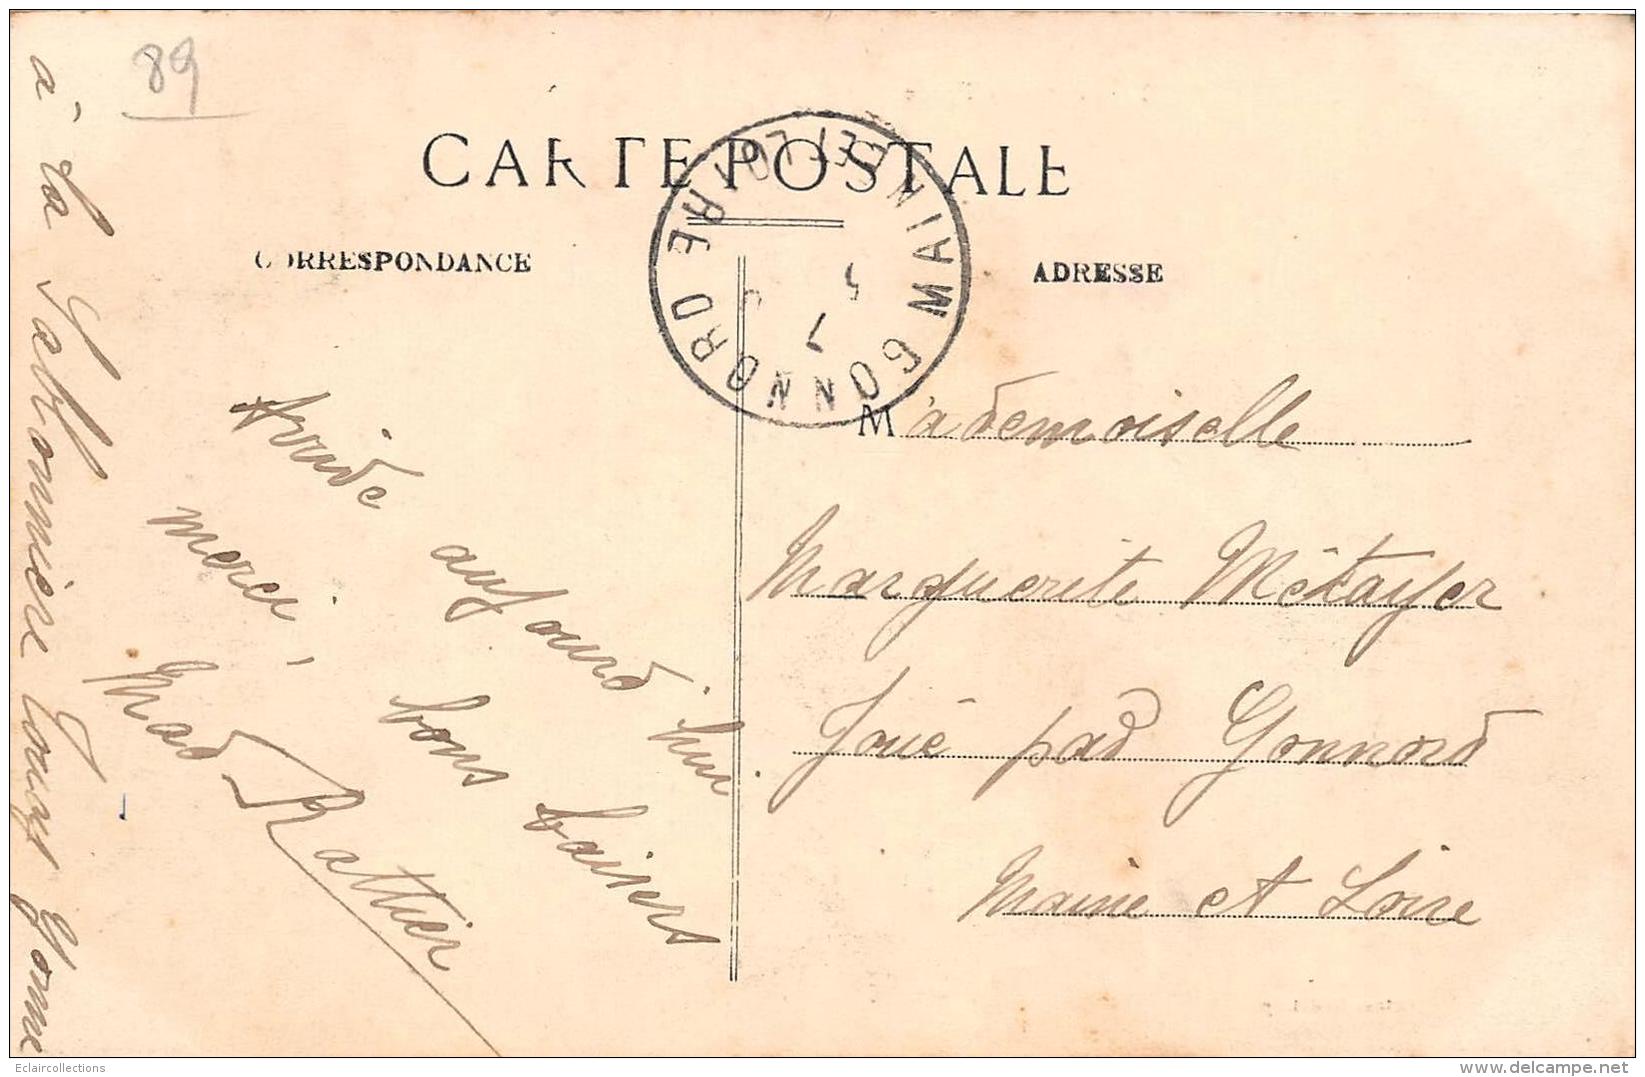 89
CARTE POSTALE
CORRESPONDANCE
ADRESSE
GONNORD MAINE ET LOIRE
7 5
Mademoiselle
Marguerite Métayer
Joué par Gonnord
Maine et Loire
Arrivée aujourd'hui
merci, bons baisers
Mad Rattier
à la Sablonnière Toucy Yonne
Eclaircollections
www.delcampe.net